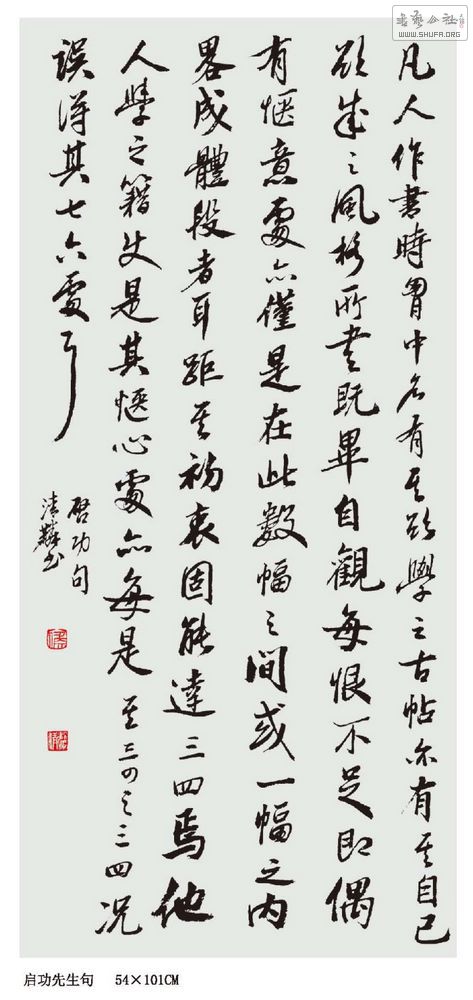 書藝公社
WWW.SHUFA.ORG
凡人作書時胷中各有其欲學之古帖亦有其自己
欲成之風格所書既畢自觀每恨不足即偶
有愜意處亦僅是在此數幅之間或一幅之内
畧成體段者耳距其初衷固能達三四焉他
人學之籍使是其愜心處亦每是其三四之三四况
誤得其七六處耳
啓功句
启功先生句 54×101CM